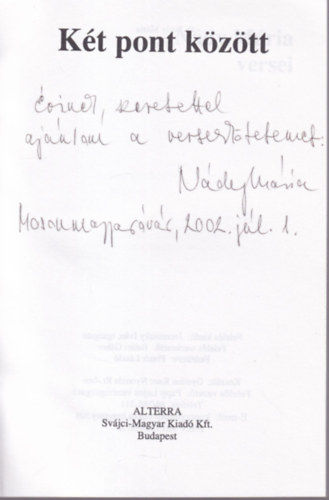 Két pont között
Évinek, szeretettel
ajánlom a verseskötetemet.
Nádej Mária
Mosonmagyaróvár, 2002. júl. 1.
ALTERRA
Svájci-Magyar Kiadó Kft.
Budapest